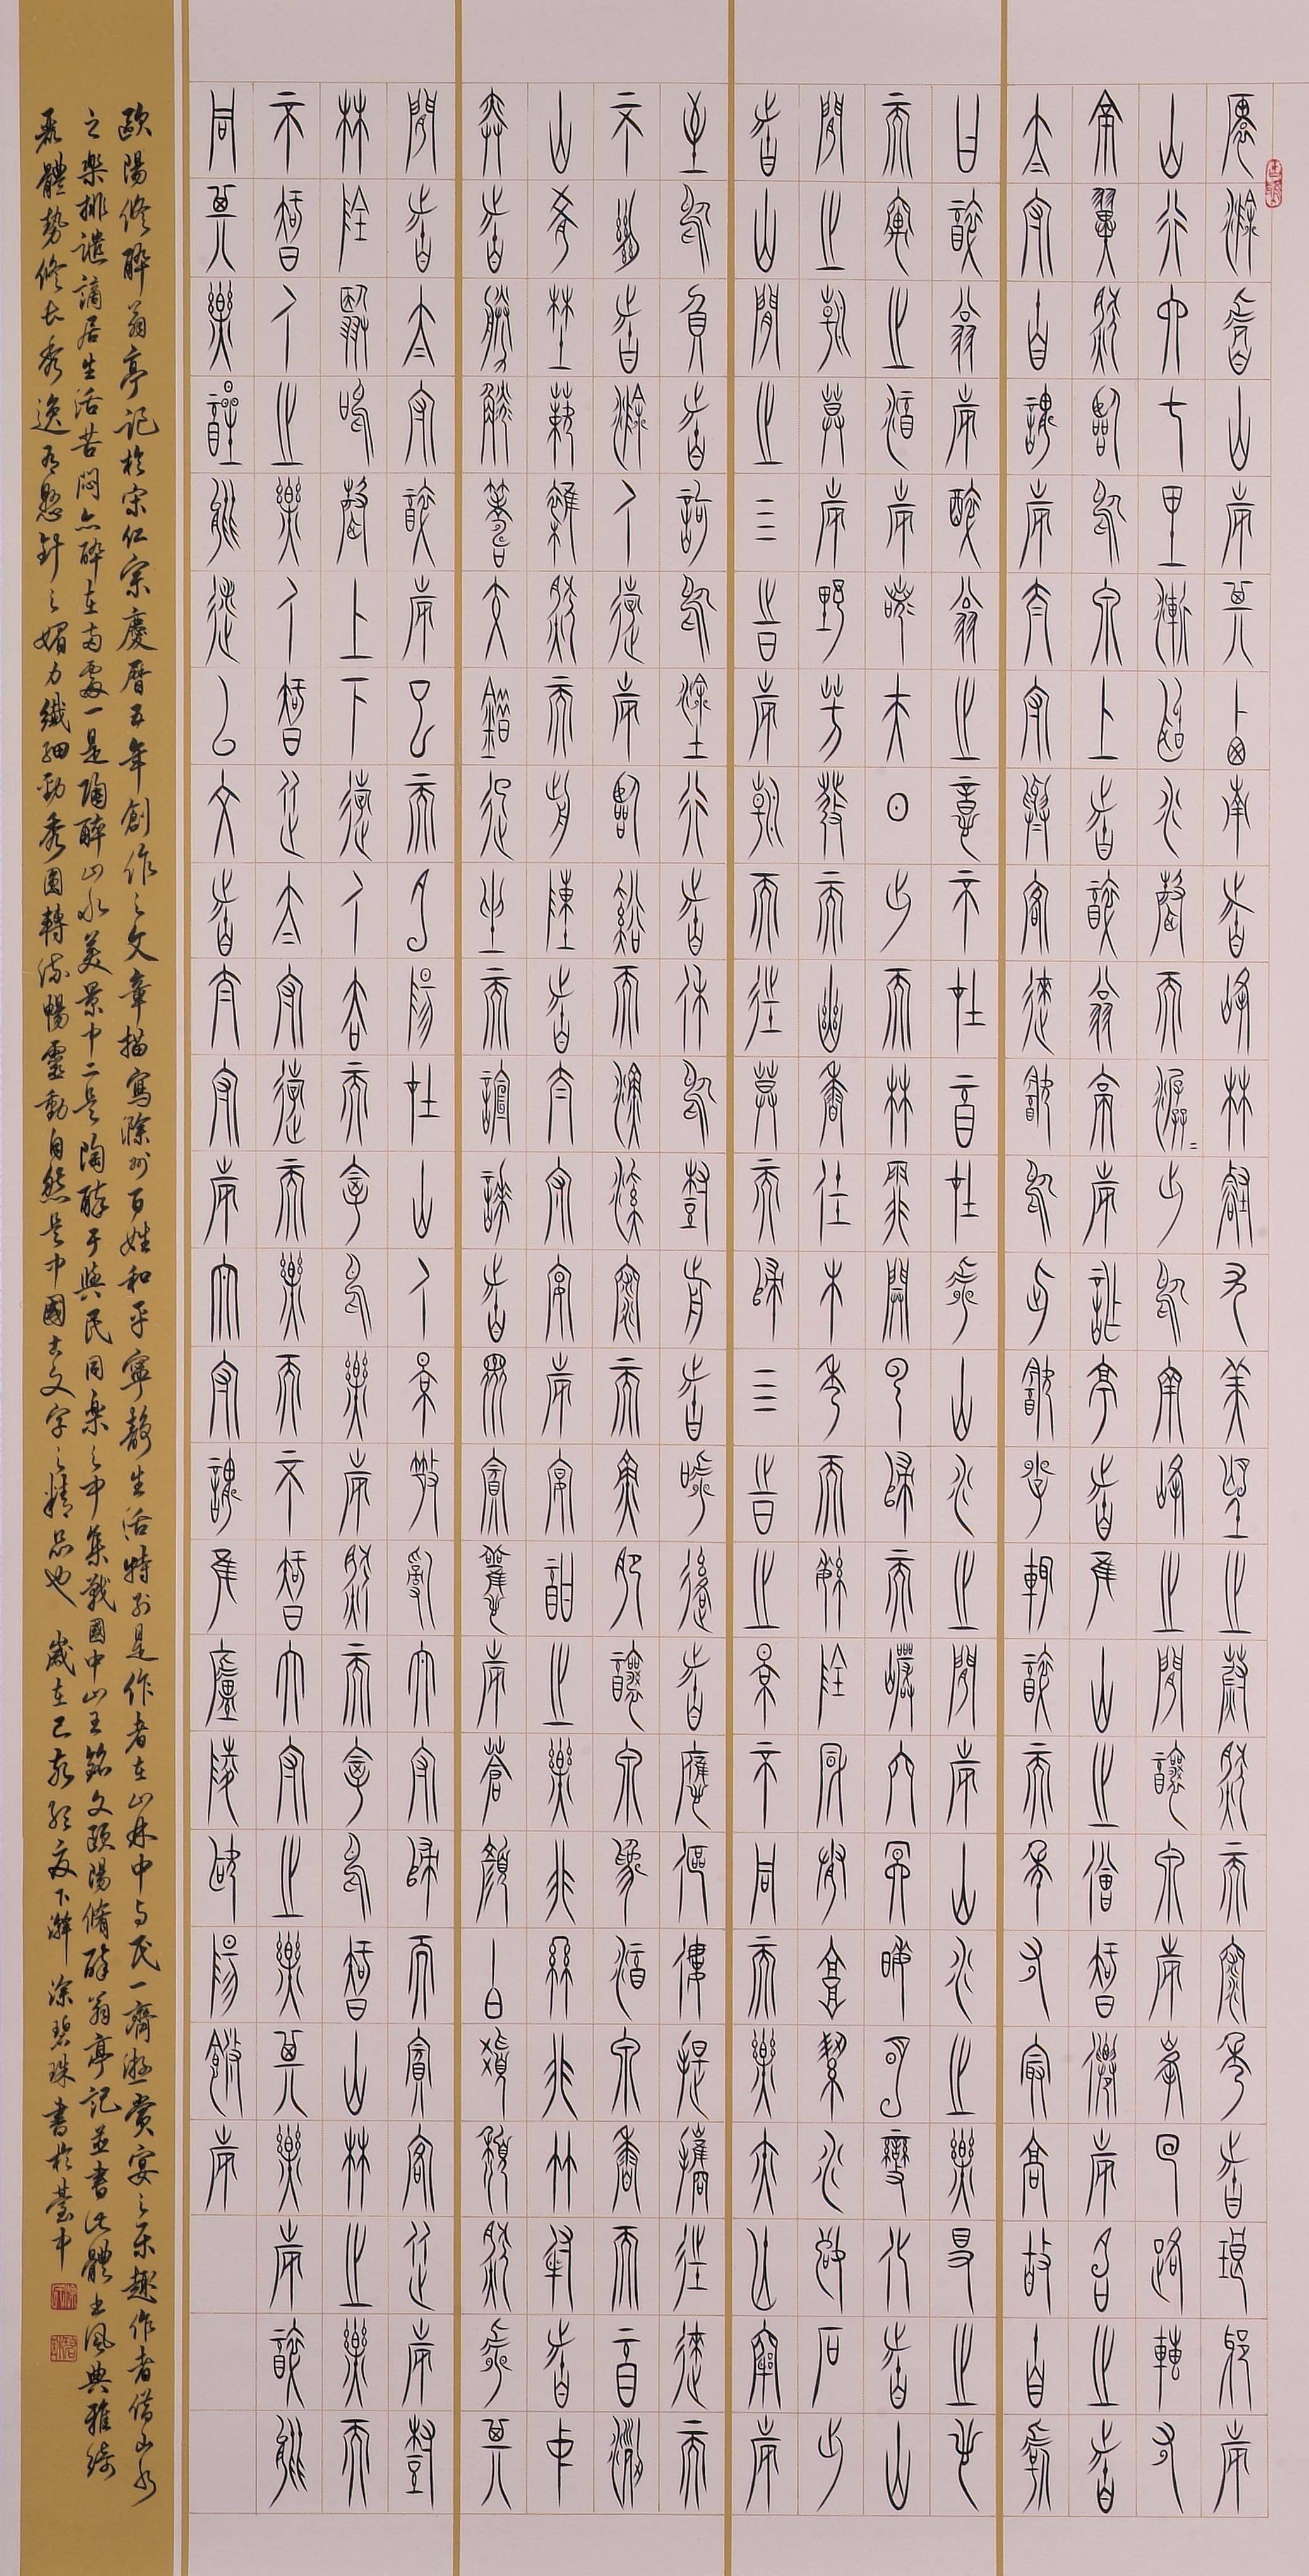 環滁皆山也其西南諸峰林壑尤美望之蔚然而深秀者琅琊也
山行六七里漸聞水聲而潺=出於兩峰之間釀泉也峰回路轉有
亭翼然臨於泉上者醉翁亭也作亭者誰山之僧智僊也名之者
太守自謂也太守與客來飲於此飲少輒醉而年又最高故自號
曰醉翁也醉翁之意不在酒在乎山水之間也山水之樂得之心
而寓之酒也若夫日出而林霏開雲歸而巖穴冥晦明變化者山
間之朝暮也野芳發而幽香佳木秀而繁陰風霜高潔水落石出
者山間之四時也朝而往暮而歸四時之景不同而樂亦無窮也
至於負者歌於塗行者休於樹前者呼後者應傴僂提攜往來而
不絕者滁人遊也臨溪而漁溪深而魚肥釀泉為酒泉香而酒洌
山餚野蔌雜然而前陳者太守宴也宴酣之樂非絲非竹射者中
弈者勝觥籌交錯起坐而喧譁者眾賓懽也蒼顏白髮頹然乎其
間者太守醉也已而夕陽在山人影散亂太守歸而賓客從也樹
林陰翳鳴聲上下遊人去而禽鳥樂也然而禽鳥知山林之樂而
不知人之樂人知從太守遊而樂而不知太守之樂其樂也醉能
同其樂醒能述以文者太守也太守謂誰廬陵歐陽修也
歐陽修醉翁亭記於宋仁宗慶曆五年創作之文章描寫滁州百姓和平寧靜生活特別是作者在山林中与民一齊遊賞宴之樂趣作者借山水
之樂排遣謫居生活苦悶亦醉在兩處一是陶醉山水美景中二是陶醉于與民同樂之中集戰國中山王銘文歐陽脩醉翁亭記並書此體書風典雅綺
麗體勢修長秀逸有懸針之媚力纖細勁秀圓轉流暢靈動自然是中國古文字之精品也 歲在己亥初夏下澣 涂碧珠書於臺中